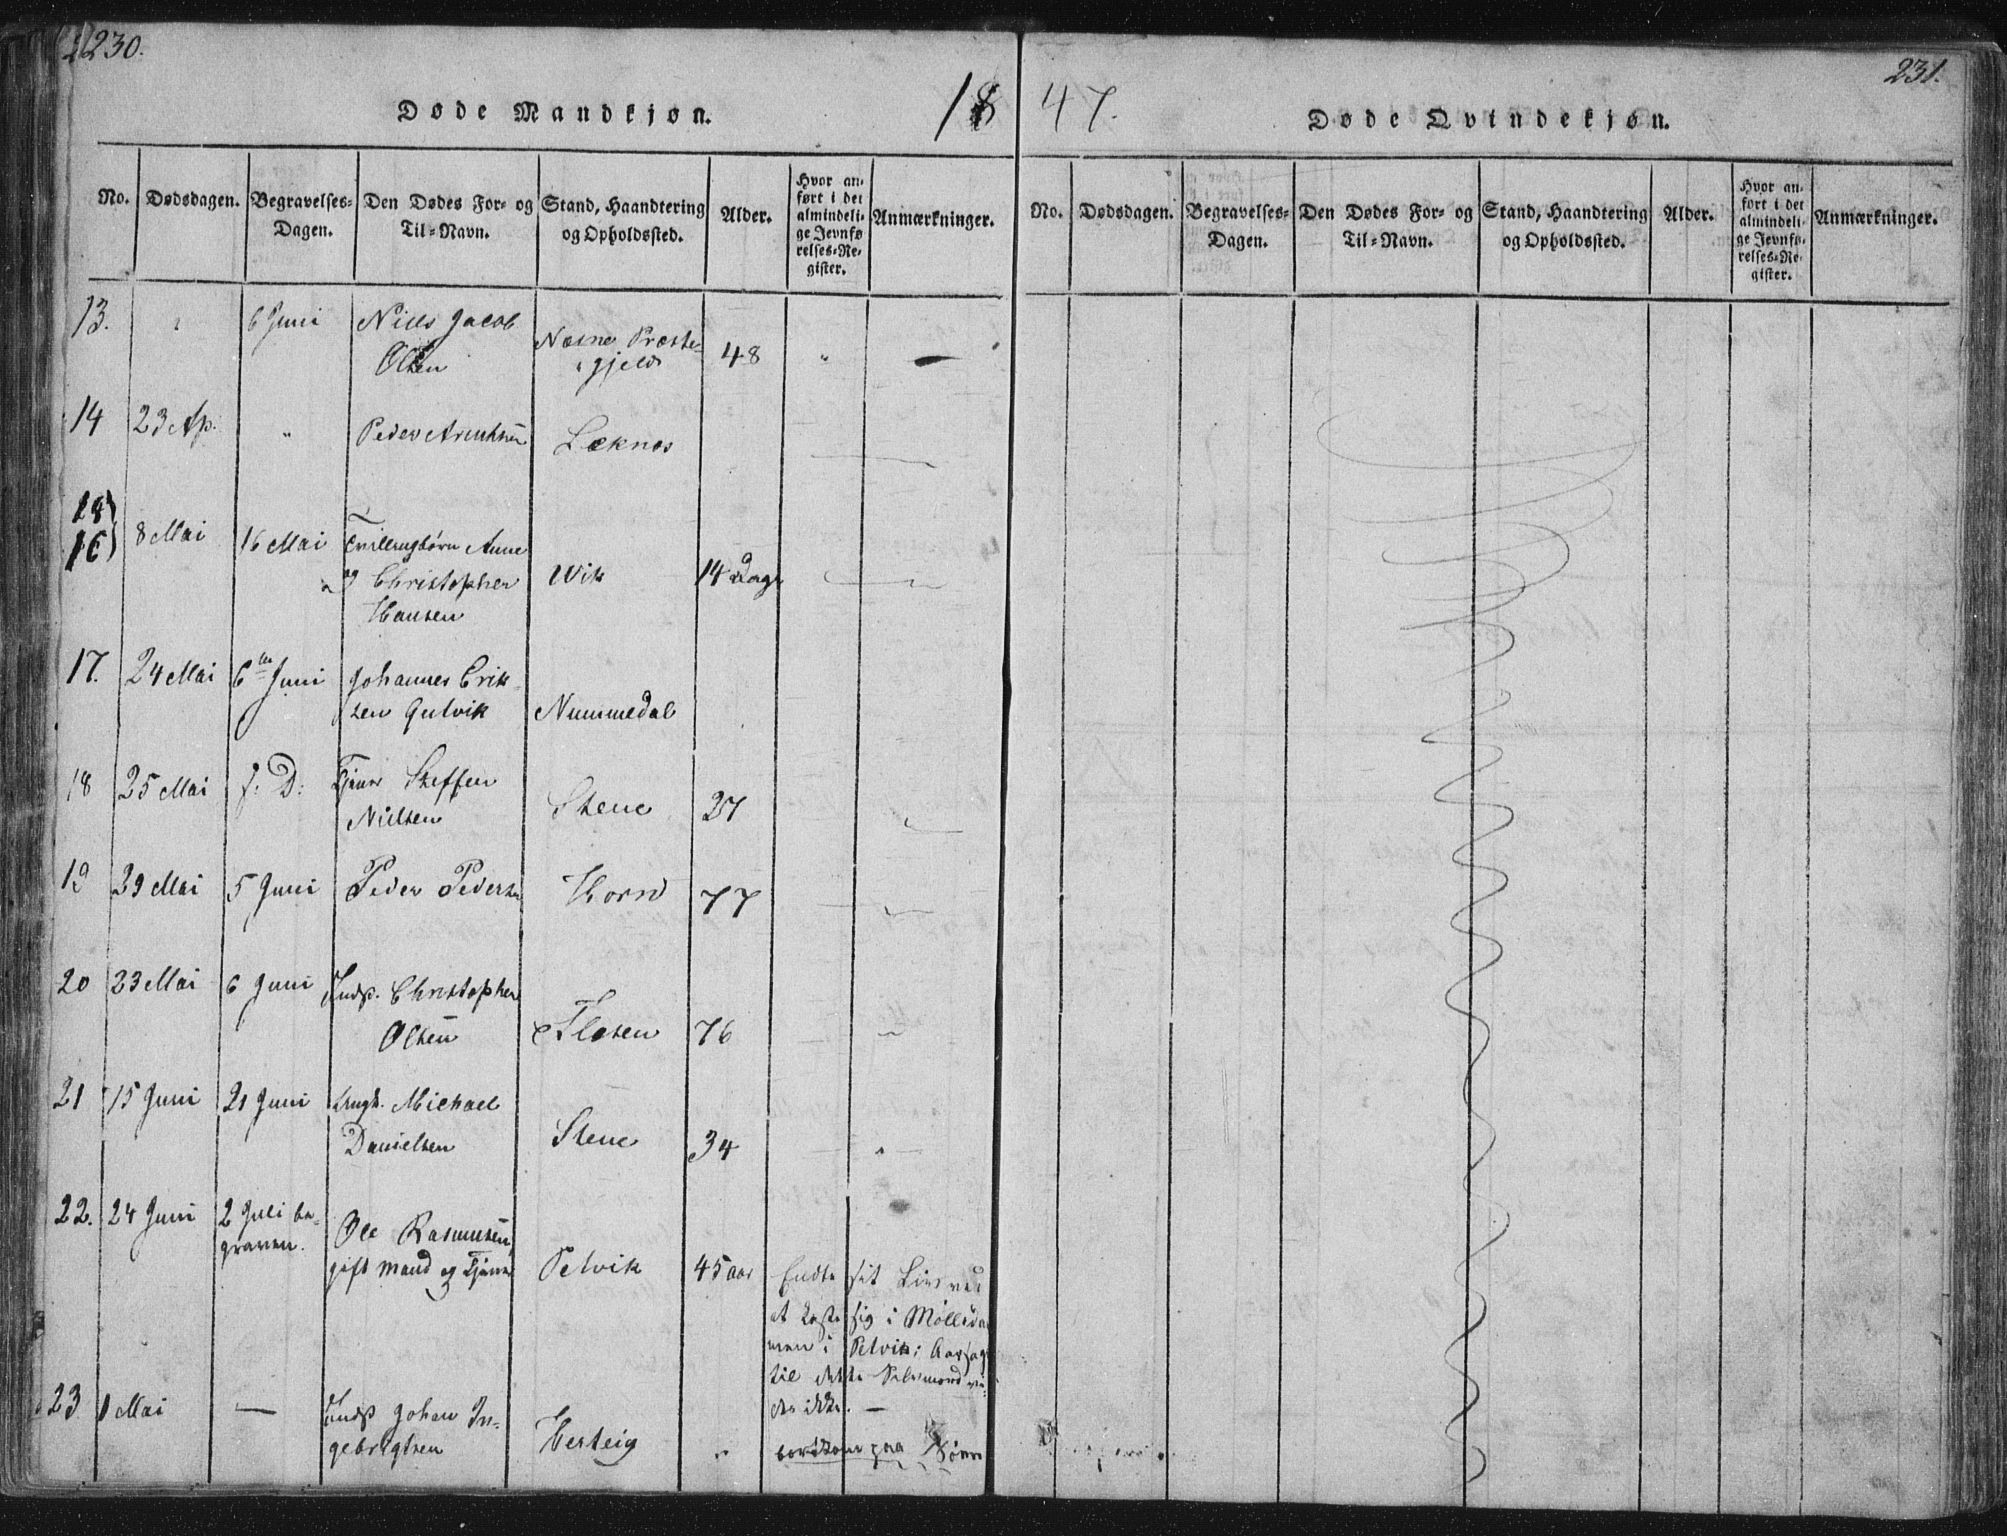 230.
Døde Mandkjøn.
18
No.
Dødsdagen.
Begravelses-
Dagen.
Den Dødes For- og
Til-Navn.
Stand, Haandtering
og Opholdssted.
Alder.
Hvor an-
ført i det
almindeli-
ge Jevnfø
relses-Re-
gister.
Anmærkninger.
13.
6 Juni
Niels Jacob
Olsen
Næsne Præste-
gjeld
48
14
23 Ap.
Peder
Læknes
16
8 Mai
16 Mai
Tvillingbørn Anne
og Christopher
Hansen
Wik
14 Dage
17.
24 Mai
6te Juni
Johannes Erik-
sen Gutvik
Nummedal
18
25 Mai
f. D:
Tjener Steffen
Nielsen
Stene
27
19
29 Mai
5 Juni
Peder Pedersen
Horn
77
20
23 Mai
6 Juni
Inds. Christopher
Olsen
76
21
15 Juni
21 Juni
Ungk. Michael
Danielsen
Stene
34
22.
24 Juni
2 Juli be-
graven.
Ole Rasmusen,
gift Mand og Tjener
Pelvik
45 aar
Endte sit Liv ved
at kaste sig i Mølledam
men i Pelvik: Aarsag
til dette Selvmord vi-
des ikke. —
23
1 Mai
—
Inds Johan In-
gebrigtsen
Herteig
"
bortkom paa Søen
47.
231.
Døde Qvindekjøn.
No.
Dødsdagen.
Begravelses-
Dagen.
Den Dødes For- og
Til-Navn.
Stand, Haandtering
og Opholdssted.
Alder.
Hvor an-
ført i det
almindeli-
ge Jevnfø-
relses-Re-
gister.
Anmærkninger.